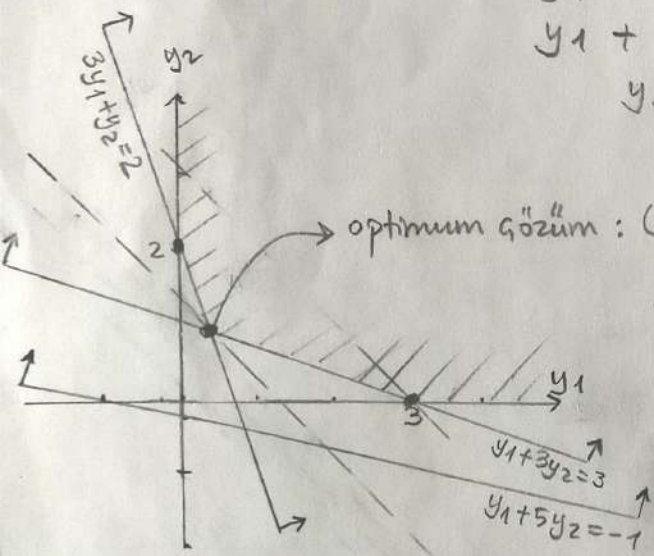 y1 +
y
y2
3y1+y2=2
2
optimum çözüm : (
y1
3
y1+3y2=3
y1+5y2=-1